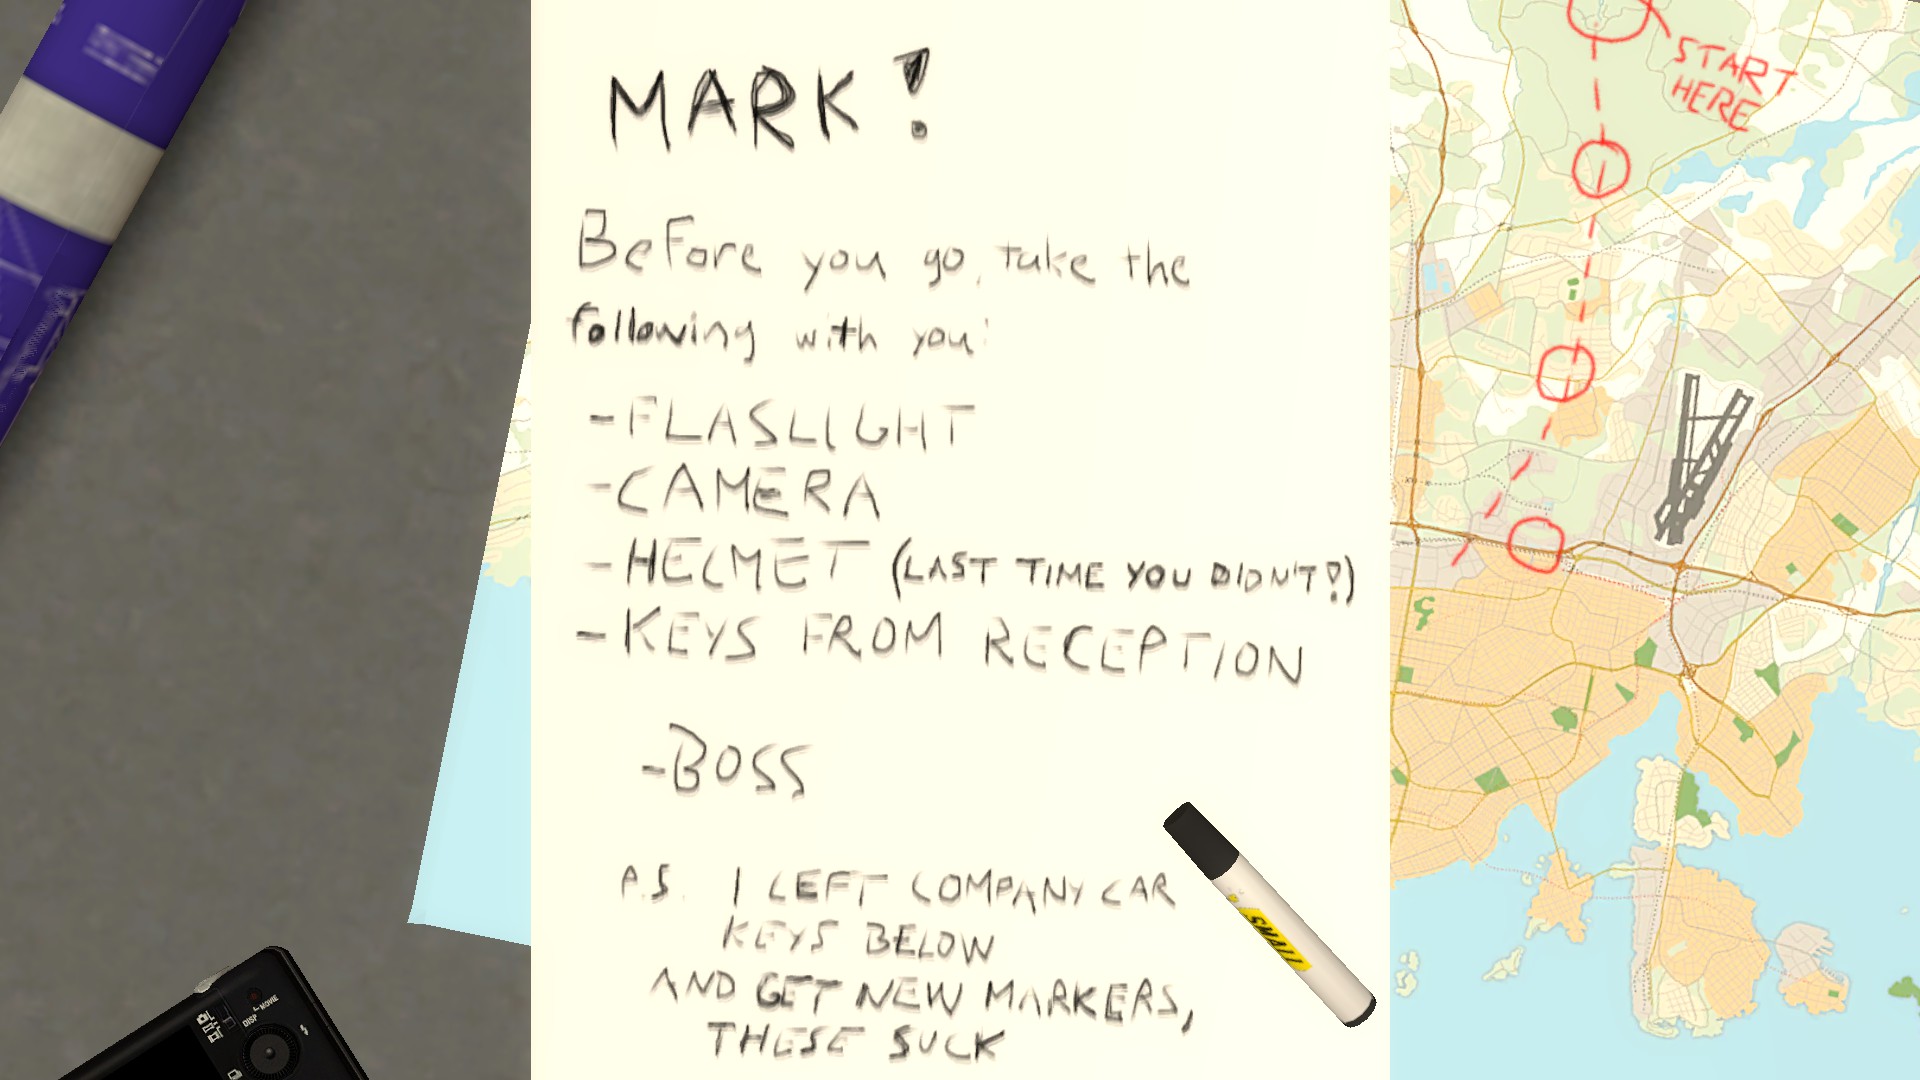 MARK!
Before you go, take the
following with you:
-FLASLIGHT
-CAMERA
-HELMET (LAST TIME YOU DIDN'T?)
-KEYS FROM RECEPTION
-BOSS
P.S. I LEFT COMPANY CAR
KEYS BELOW
AND GET NEW MARKERS,
THESE SUCK
SMALL
START
HERE
DISP
MOVIE